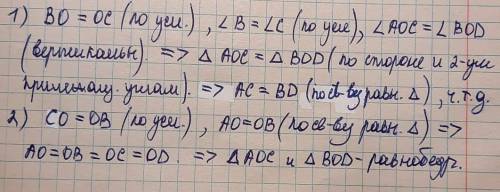 1) BO = OC (по усл.) , ∠B = ∠C (по усл), ∠AOC = ∠BOD
(вертикальн). => △ AOC = △ BOD (по стороне и 2-ум
прилежащ. углам). => AC = BD (по св-ву равн. △) , ч.т.д.
2) CO = OB (по усл.) , AO = OB (по св-ву равн. △) =>
AO = OB = OC = OD. => △AOC и △BOD - равнобедр.